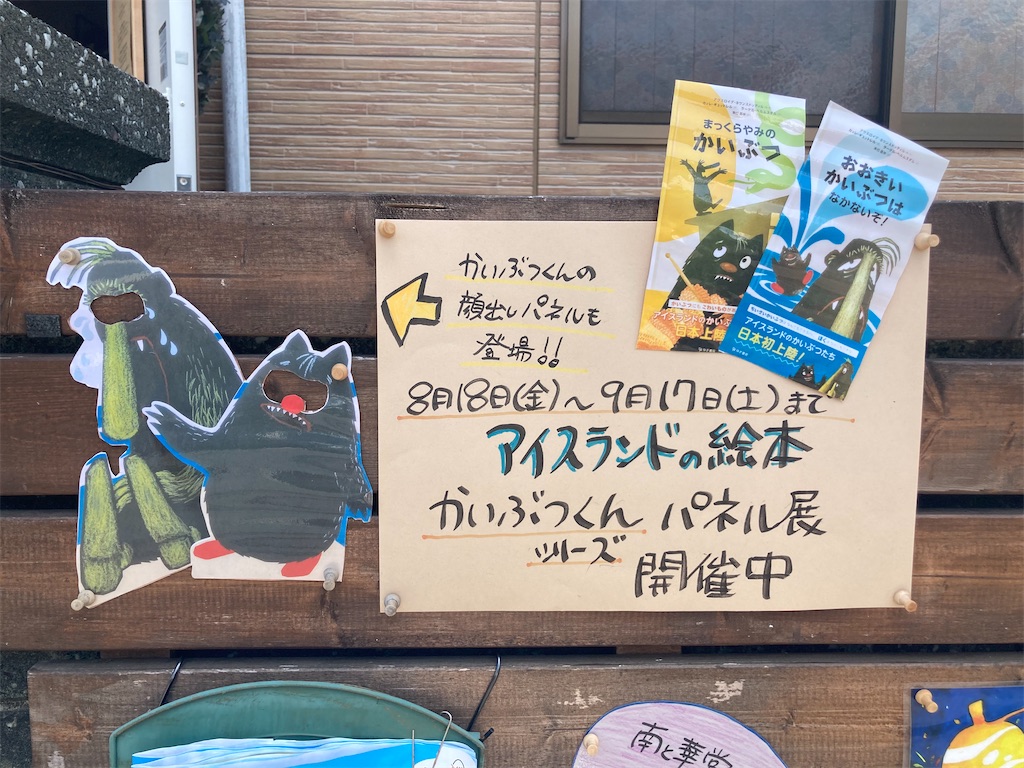 かいぶつくんの
顔出しパネルも
登場!!
8月18日(金)～9月17日(土)まで
アイスランドの絵本
かいぶつくん パネル展
シリーズ
開催中
まっくらやみの
かいぶつ
アイスランドのかいぶ
日本上陸!
おおきい
かいぶつは
なかないぞ!
アイスランドのかいぶつたち
日本初上陸!
南と華堂